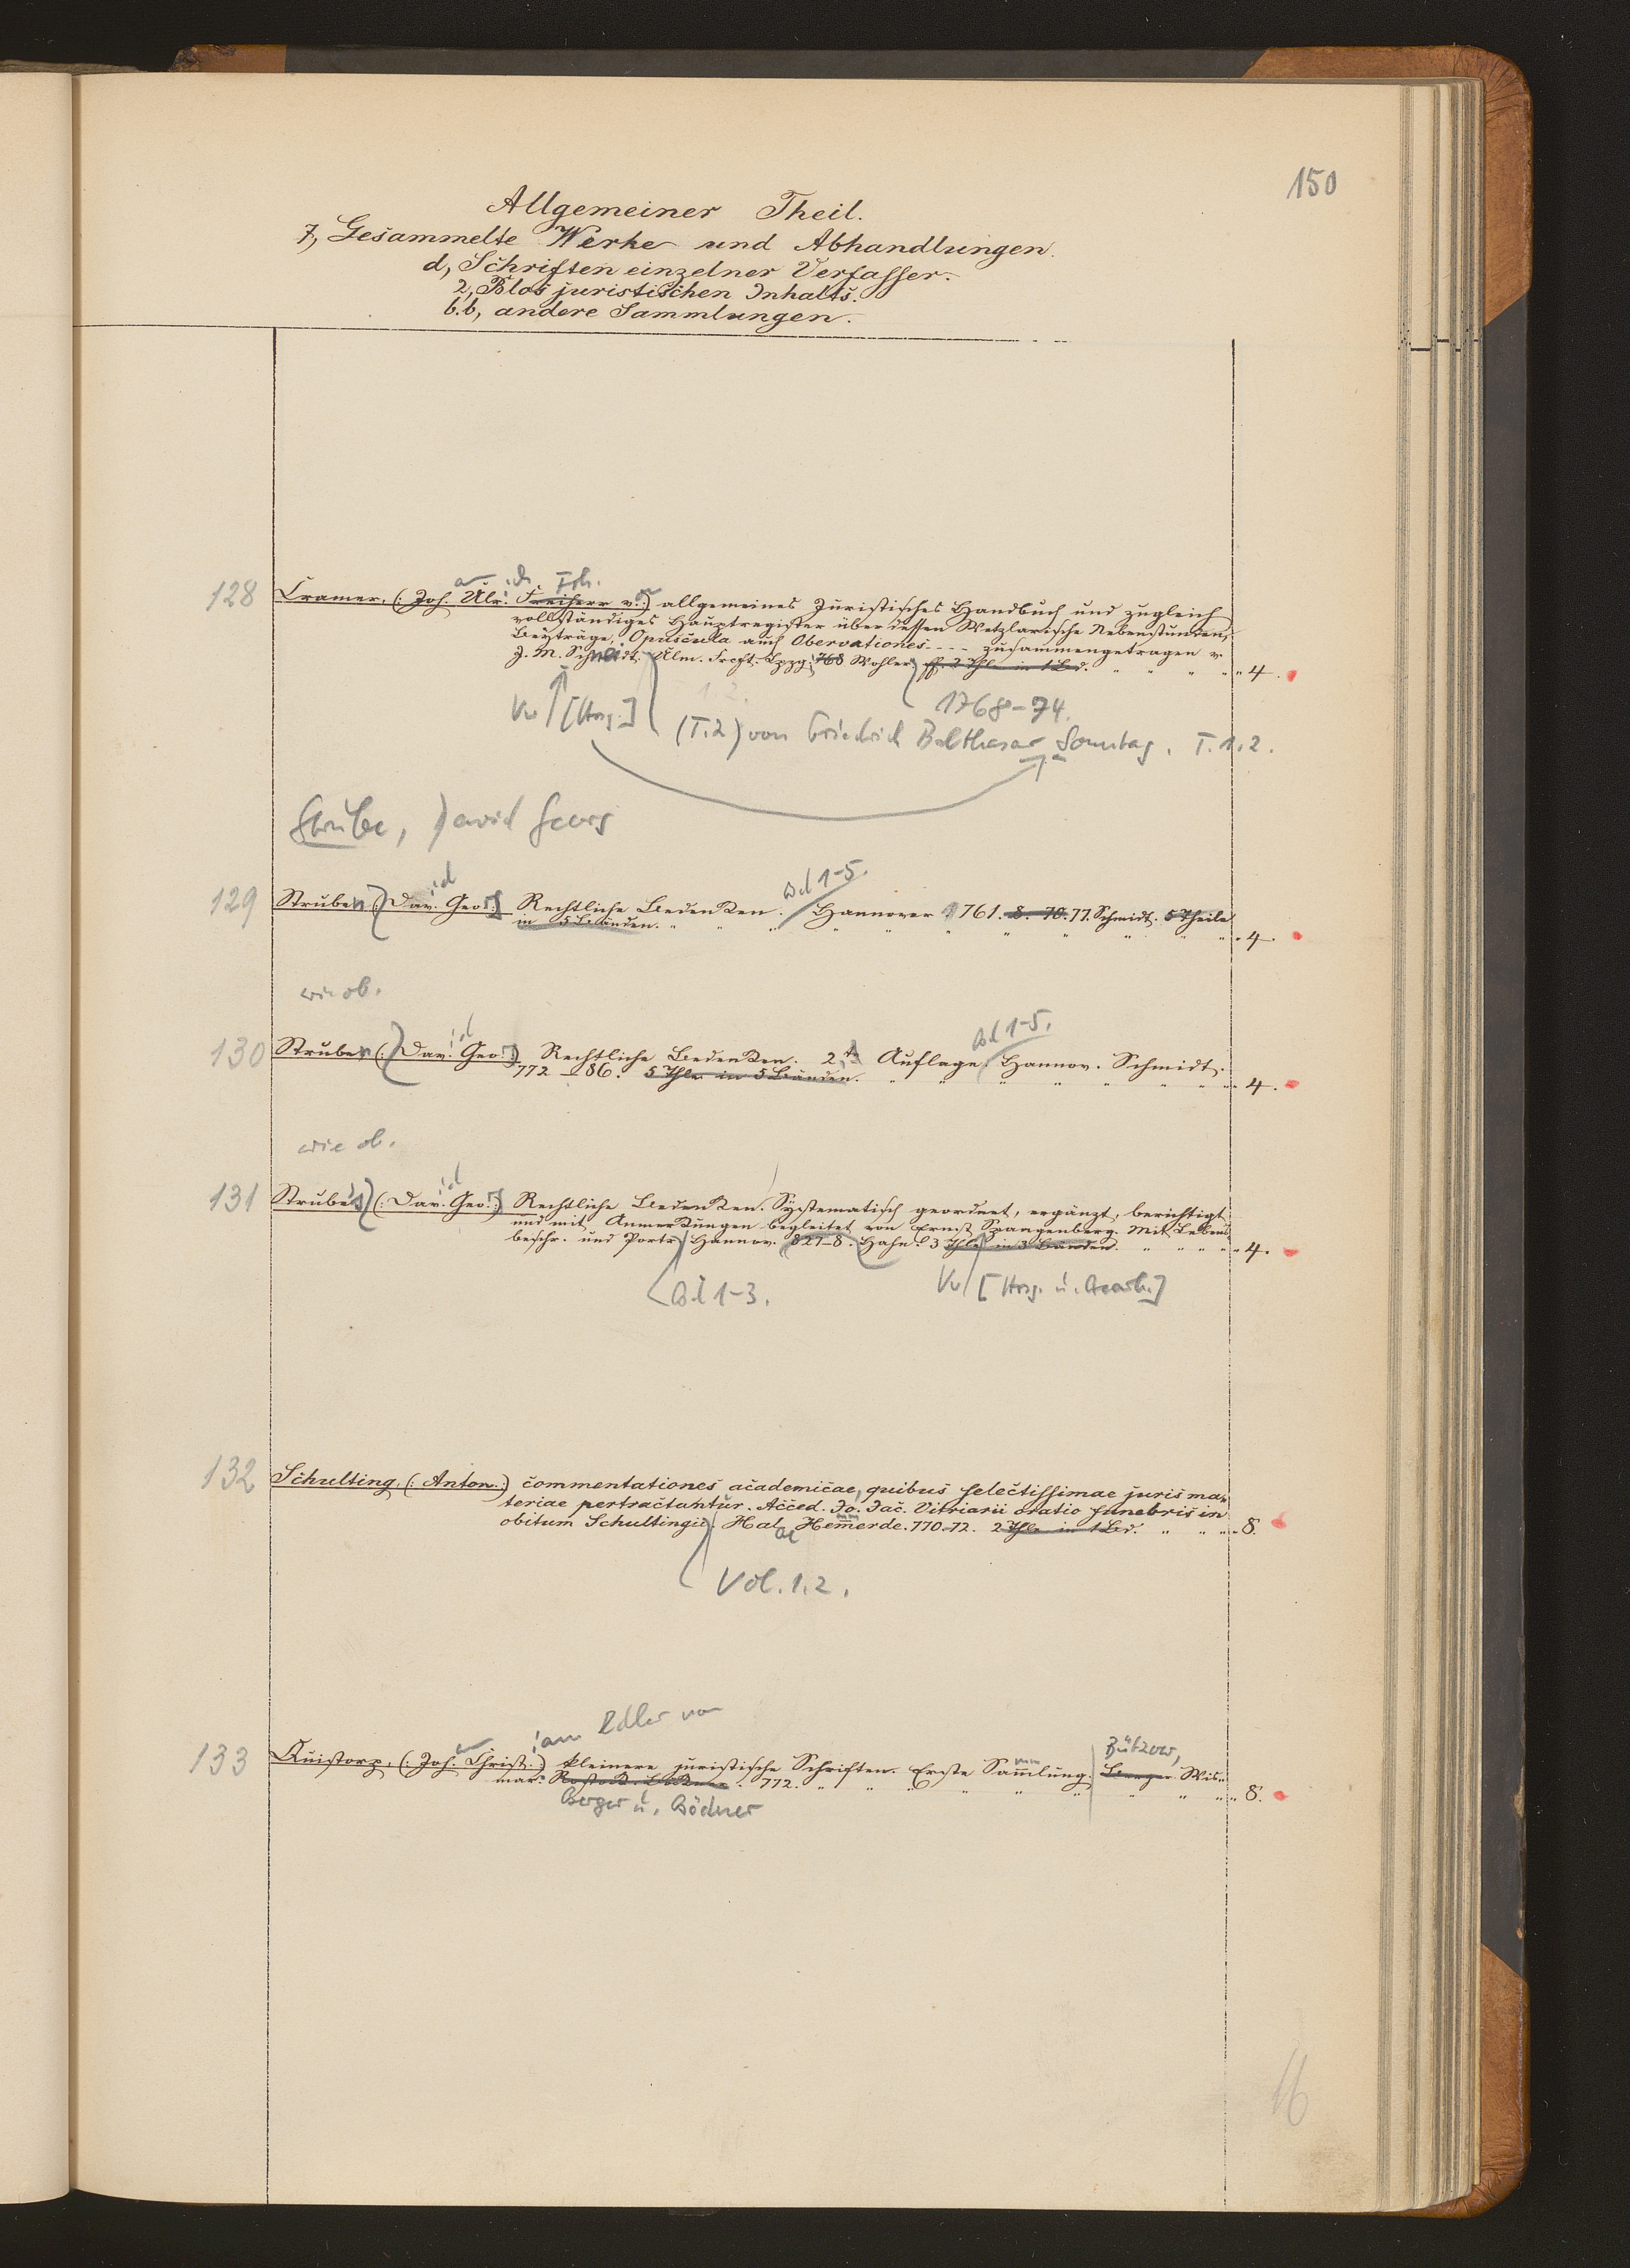 150
Allgemeiner Theil.
7, Gesammelte Werke und Abhandlungen.
d, Schriften einzelner Verfasser.
2, Blos juristischen Inhalts.
b.b, andere Sammlungen.
id Frh.
128 Cramer, (: Joh. Ulr. Freiherr v. :) allgemeines Juristisches Handbuch und zugleich
vollständiges Hauptregister über dessen Wetzlarische Nebenstunden,
Beyträge, Opuscula auch Obervationes - - - - zusammengetragen v.
J. M. Schneidt. Ulm. Frcft. Lpzg. 768 Wohler. ff. 2 Thle in 1 Bd. " " " " " 4.
Vw [Hrsg.] 1768-74.
(T.2) von Friedrich Balthasar Sonntag. T. 1.2.
Strube, David Georg
id Bd 1-5.
129 Struben (: Dav. Geo. :) Rechtliche Bedenken. Hannover 1761. 8. 70. 77. Schmidt. 5 Theile
in 5 Bänden. " " " " " " " " " " 4.
wie ob.
id Bd 1-5.
130 Struben (: Dav. Geo. :) Rechtliche Bedenken. 2te Auflage. Hannov. Schmidt.
772-86. 5 Thle in 5 Bänden. " " " " " " " " 4.
wie ob.
id
131 Strube's (: Dav. Geo. :) Rechtliche Bedenken. Systematisch geordnet, ergänzt, berichtigt
und mit Anmerkungen begleitet von Ernst Spangenberg. Mit Lebens
beschr. und Portr. Hannov. 827-8. Hahn. 3 Thle in 3 Bänden. " " " " " 4.
Bd 1-3. Vw [Hrsg. u. Bearb.]
132 Schulting, (: Anton. :) commentationes academicae, quibus selectissimae juris ma-
teriae pertractantur. Acced. Jo. Jac. Vitriarii oratio funebris in
obitum Schultingii. Hal. Hem̅erde. 770-72. 2 Thle in 1 Bd. " " " " 8.
ae
Vol. 1.2.
ian Edler von
Bützow,
133 Quistorp, (: Joh. Christ. :) kleinere juristische Schriften. Erste Sam̅lung. Berger Wis-
mar. 772. " " " " " " " " " 8.
Berger u. Bödner
16